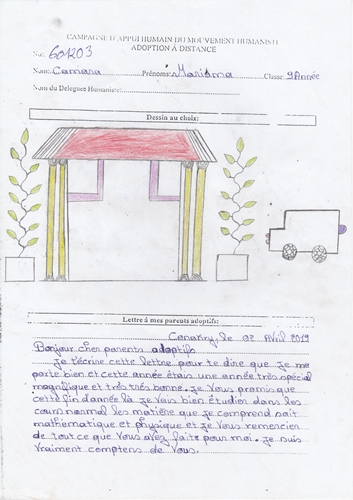 CAMPAGNE D'APPUI HUMAIN DU MOUVEMENT HUMANISTE
ADOPTION À DISTANCE
No: 601203
Nom: Camara Prénoms: Mariama Classe: 9Année
Nom du Deleguee Humaniste:
Dessin au choix:
Lettre à mes parents adoptifs:
Conakry, le 02 Avril 2019
Bonjour cher parents adoptifs
Je t'écrine cette lettre pour te dire que je me
porte bien et cette année étais une année très spécial
magnifique et très très bonne. Je vous promis que
cette fin d'année là je vais bien étudier dans les
cour normal les matière que je comprend sait
mathématique et physique et je vous remencier
de tout ce que vous avez faite pour moi. Je suis
vraiment comptens de vous.